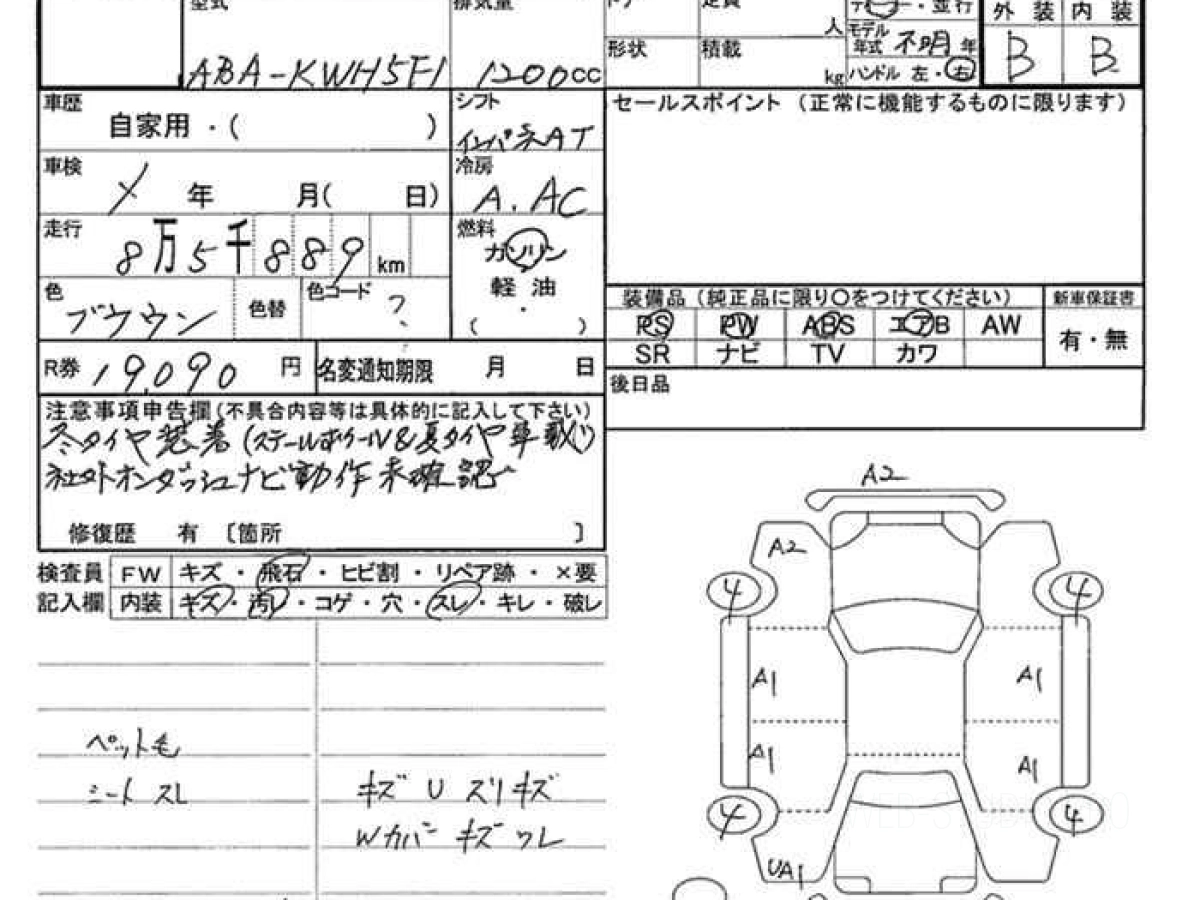 型式 ABA-KWH5F1
排気量 1200cc
定員 人
ディーラー・並行
モデル年式 不明 年
形状
積載 kg
ハンドル 左・右
外装 内装
B B
車歴 自家用・( )
シフト インパネAT
セールスポイント (正常に機能するものに限ります)
車検 年 月( 日)
冷房 A.AC
走行 8万5千889km
燃料 ガソリン
軽油
・
( )
色 ブラウン
色替
色コード ?
装備品(純正品に限り○をつけてください)
新車保証書
PS PW ABS エアB AW
有・無
SR ナビ TV カワ
R券 19,090 円
名変通知期限 月 日
後日品
注意事項申告欄(不具合内容等は具体的に記入して下さい)
冬タイヤ装着(スチールホイール&夏タイヤ車載)
社外オンダッシュナビ動作未確認
修復歴 有 〔箇所 〕
検査員 FW キズ・飛石・ヒビ割・リペア跡・×要
記入欄 内装 キズ・汚レ・コゲ・穴・スレ・キレ・破レ
A2
A2
4 4
A1 A1
A1 A1
4 4
UA1
ペット毛
シート スレ
キズ U ズリキズ
Wカバー キズ ワレ